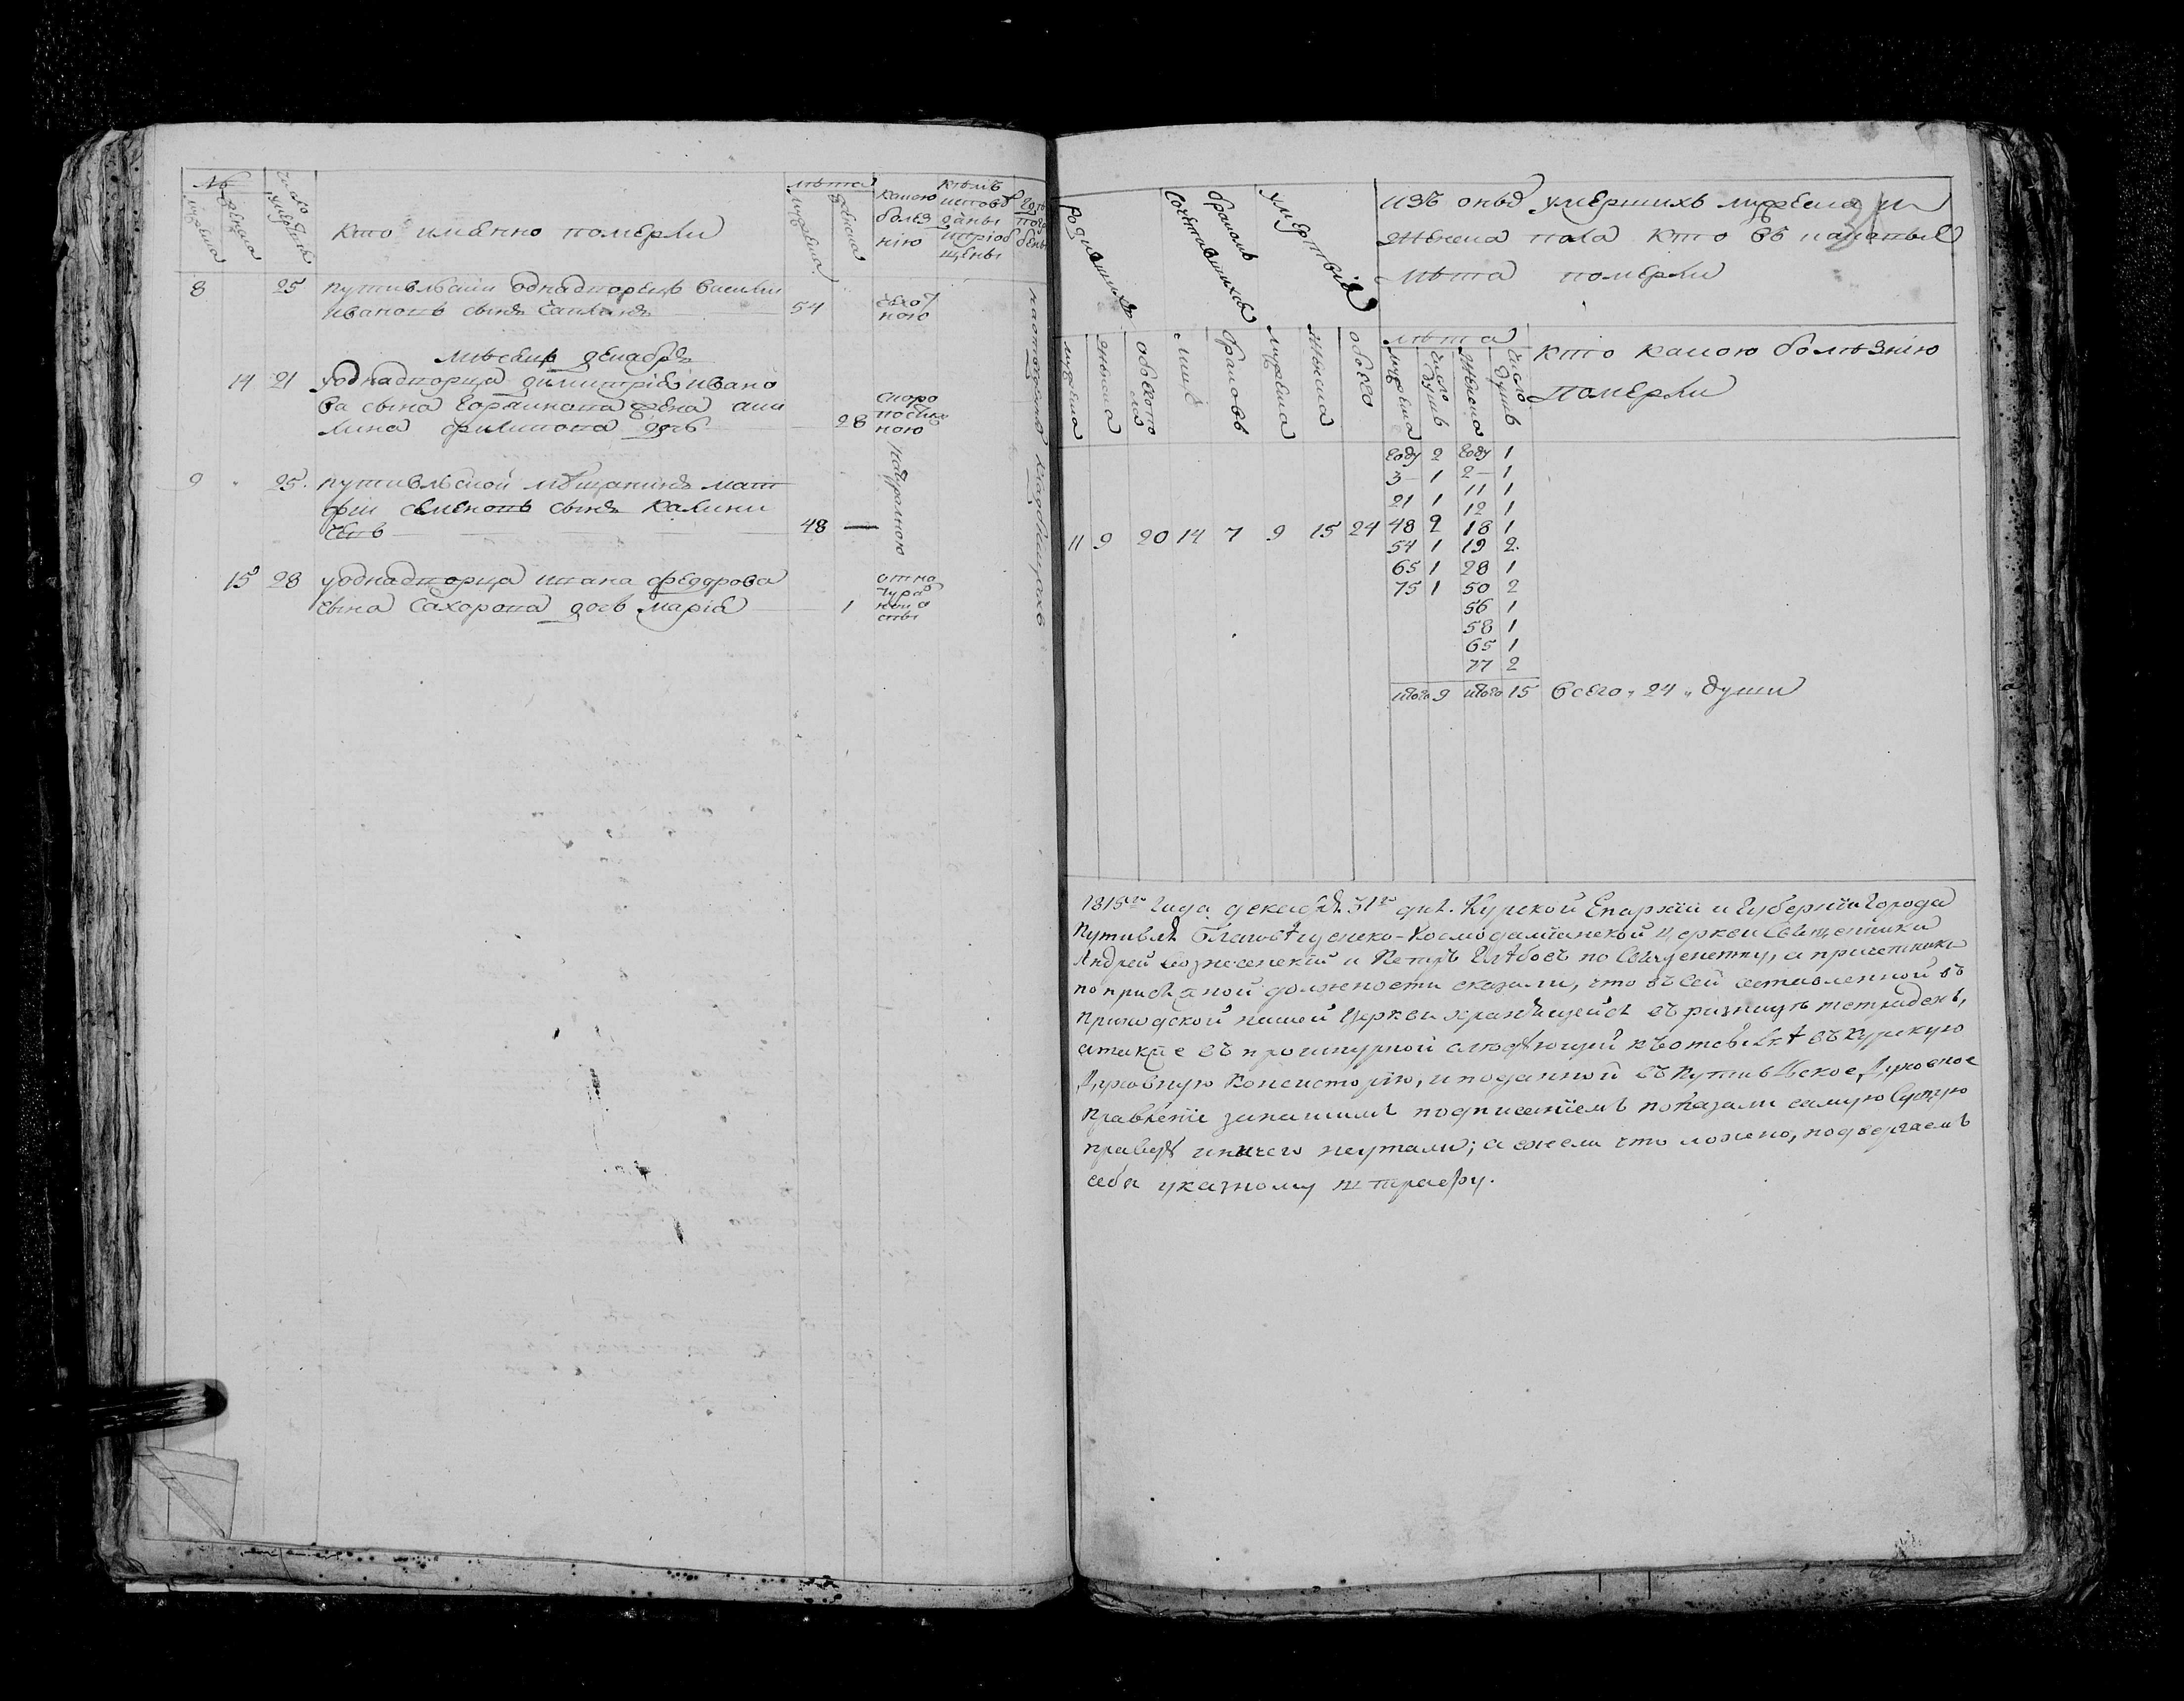 №
мужеска
женска
число умершихъ
кто имянно померли
лѣта
мужеска
женска
какою болезнію
кѣмъ исповѣданы и пріобщены
гдѣ погребены
8 25 путивльскій однадворецъ василій
ивановъ сынъ 54 чехотною
мѣсецъ декабрь
14 21 уоднадворца димитрія ивано
ва сына жена аки
лина филипова дочь 28 скоропостижною
9 25 путивльской мѣщанинъ мат
фій семеновъ сынъ калини
чевъ 48 — натуралною
15 28 уоднадворца ивана федорова
сына Сахорова дочь марія 1
на отведенномъ кладбищахъ
родившихся
бракомъ сочетавшихся
умертвія
изъ оныхъ умершихъ мужеска и
женска пола кто въ каковые
лѣта померли
мужеска
женска
обоего пола
браковъ
мужеска
женска
обоего
лѣта
мужеска
число душъ
женска
число душъ
кто какою болѣзнію
померли
году 2 году 1
3 — 1 2 — 1
21 1 11 1
12 1
11 9 20 14 7 9 15 24 48 2 18 1
54 1 19 2
65 1 28 1
75 1 50 2
56 1
58 1
65 1
77 2
итого 9 итого 15 всего 24 души
1815го года декабря 31го дня. Курской Епархіи и Губерніи Города
Путивля Благовѣщенско-Космодаміанской церкви Священники
Андрей Вознесенскій и Петръ Глѣбовъ по Священству, а причетники
по присяжной должности сказали, что въ сей оставленной въ
приходской нашей Церкви хранящейся въ ризницѣ тетрадехъ,
а также въ прошнурной слѣдующей къ отсылкѣ въ Курскую
Духовную Консисторію, и поданной въ Путивльское Духовное
Правленіе за нашимъ подписаніемъ показали самую сущую
правду и ничего неутаили; а ежели что ложно, подвергаемъ
себя указному штрафу.